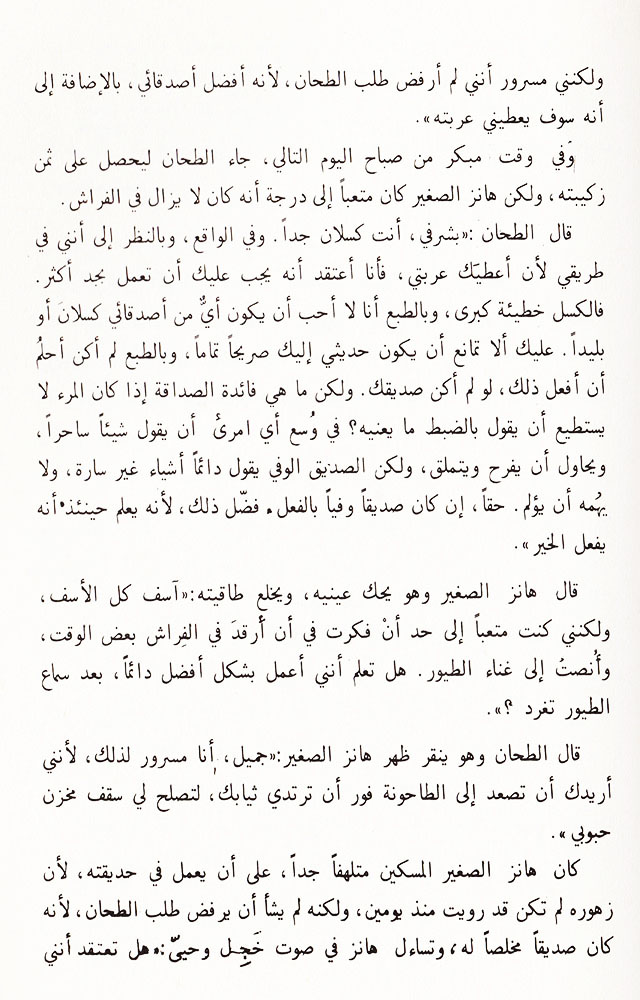 ولكنني مسرور أنني لم أرفض طلب الطحان، لأنه أفضل أصدقائي، بالإضافة إلى
أنه سوف يعطيني عربته».
وَفي وقت مبكر من صباح اليوم التالي، جاء الطحان ليحصل على ثمن
زكيبته، ولكن هانز الصغير كان متعباً إلى درجة أنه كان لا يزال في الفراش.
قال الطحان :«بشرفي، أنت كسلان جداً. وفي الواقع، وبالنظر إلى أنني في
طريقي لأن أعطيّك عربتي، فأنا أعتقد أنه يجب عليك أن تعمل بجد أكثر.
فالكسل خطيئة كبرى، وبالطبع أنا لا أحب أن يكون أيٌّ من أصدقائي كسلانَ أو
بليداً. عليك ألا تمانع أن يكون حديثي إليك صريحاً تماماً، وبالطبع لم أكن أحلمُ
أن أفعل ذلك، لو لم أكن صديقك. ولكن ما هي فائدة الصداقة إذا كان المرء لا
يستطيع أن يقول بالضبط ما يعنيه؟ في وُسع أي امرئ أن يقول شيئاً ساحراً،
ويحاول أن يفرح ويتملق، ولكن الصديق الوفي يقول دائماً أشياء غير سارة، ولا
يهُمه أن يؤلم. حقاً، إن كان صديقاً وفياً بالفعل، فضّل ذلك، لأنه يعلم حينئذ أنه
يفعل الخير».
قال هانز الصغير وهو يحك عينيه، ويخلع طاقيته:«آسف كل الأسف،
ولكنني كنت متعباً إلى حد أنْ فكرت في أن أرقدَ في الفِراش بعض الوقت،
وأُنصتُ إلى غناء الطيور. هل تعلم أنني أعمل بشكل أفضل دائماً، بعد سماع
الطيور تغرد ؟».
قال الطحان وهو ينقر ظهر هانز الصغير:«جميل، أنا مسرور لذلك، لأنني
أريدك أن تصعد إلى الطاحونة فور أن ترتدي ثيابك، لتصلح لي سقف مخزن
حبوبي».
كان هانز الصغير المسكين متلهفاً جداً، على أن يعمل في حديقته، لأن
زهوره لم تكن قد رويت منذ يومين، ولكنه لم يشأ أن يرفض طلب الطحان، لأنه
كان صديقاً مخلصاً له، وتساءل هانز في صوت خَجِل وحييّ:«هل تعتقد أنني